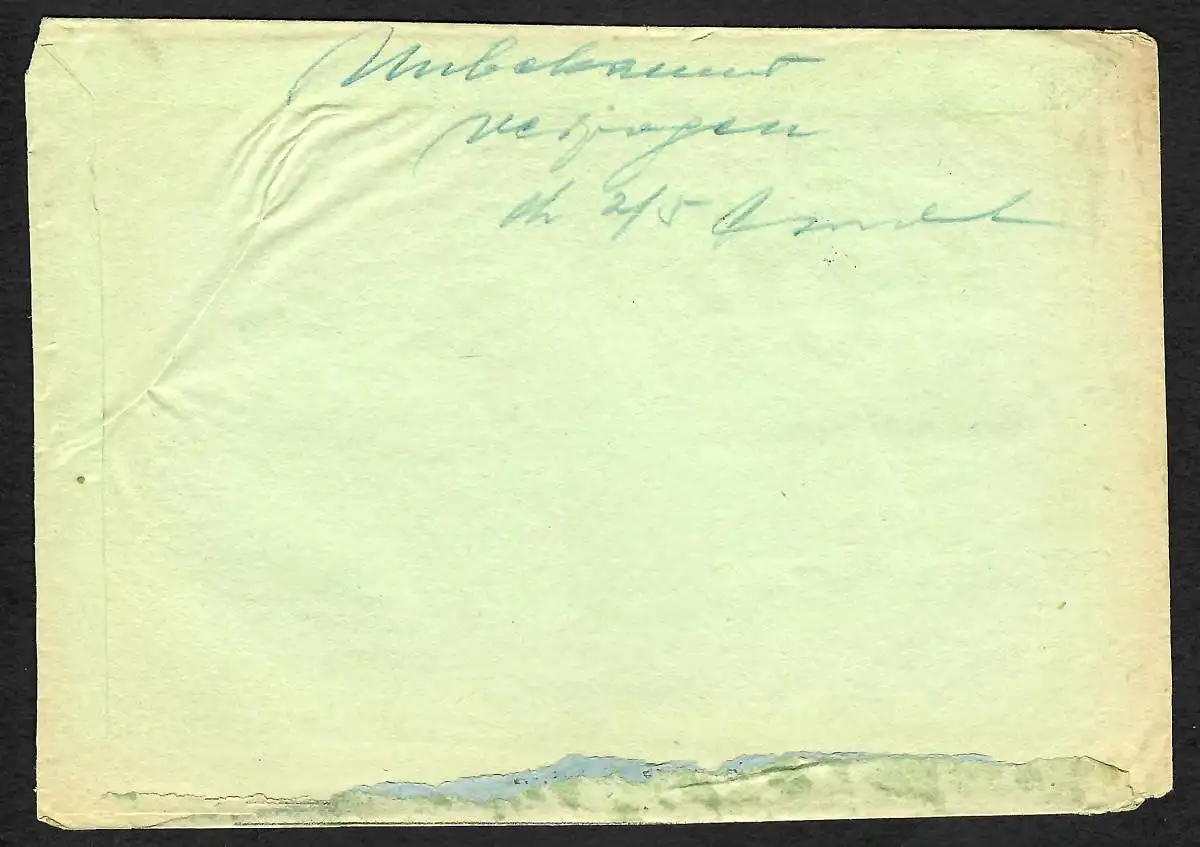 Unbekannt
verzogen
2/5